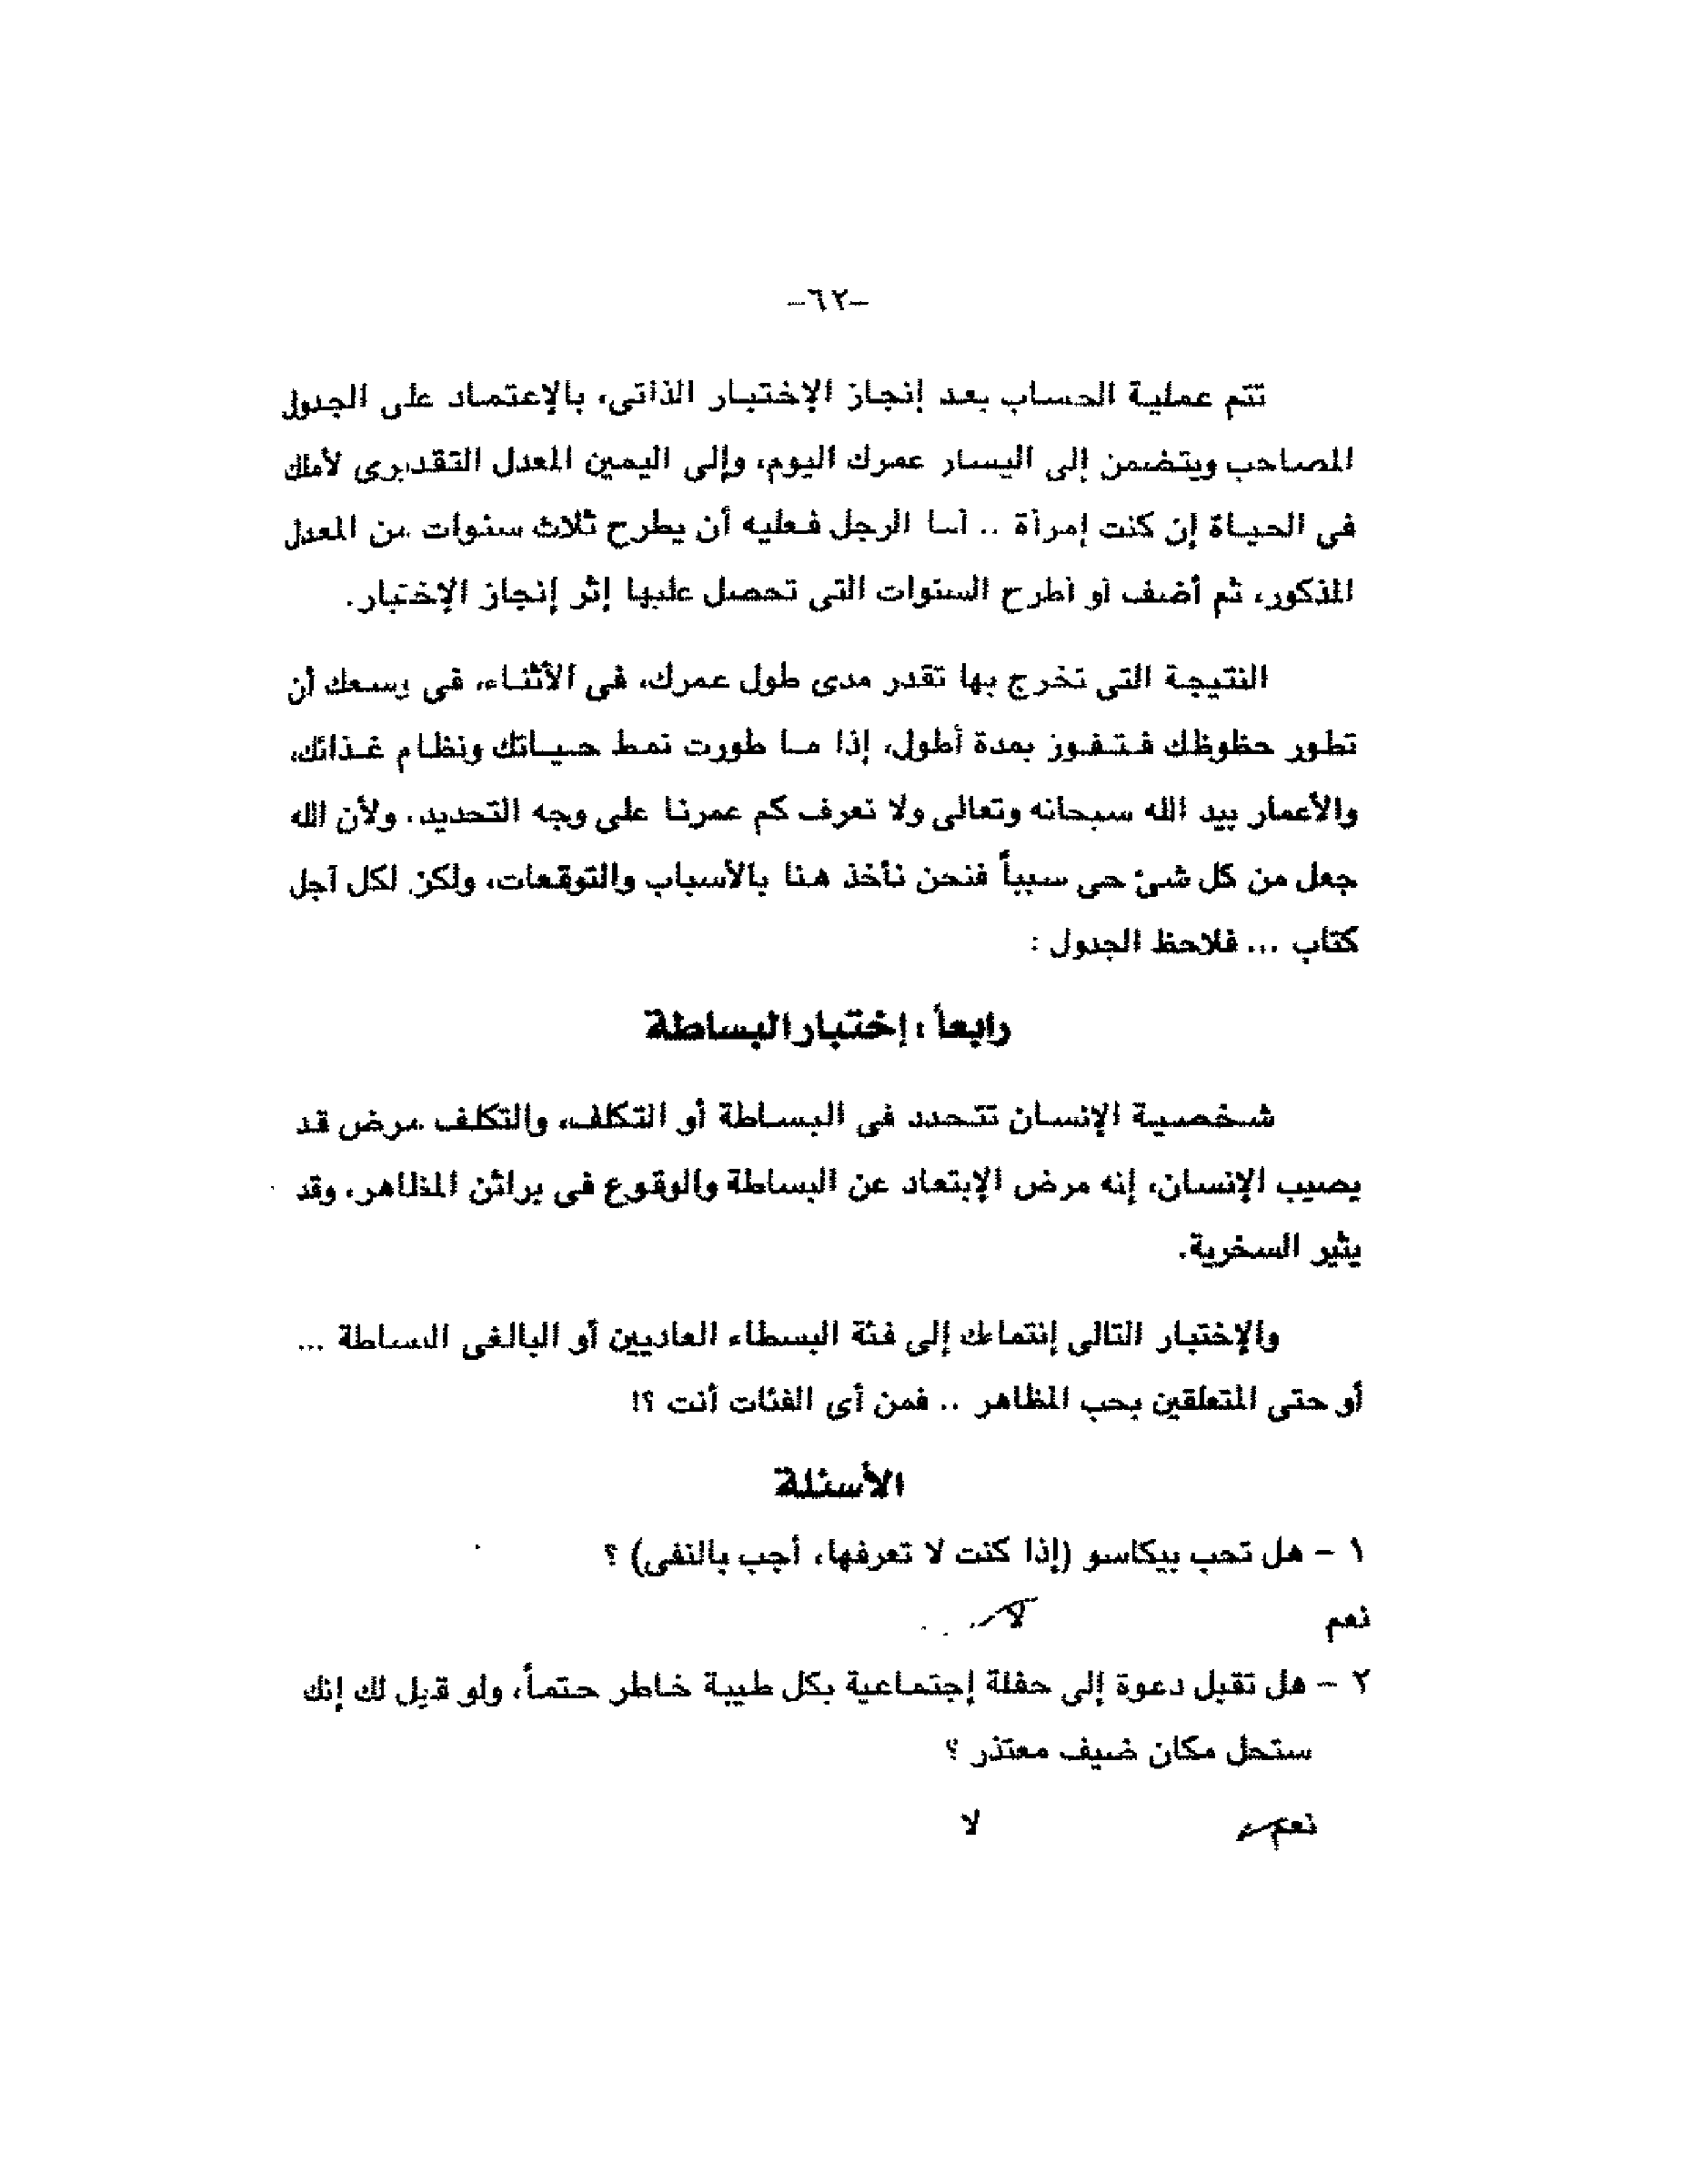 -٦٢-
تتم عملية الحساب بعد إنجاز الإختبار الذاتى، بالإعتماد على الجدول
المصاحب ويتضمن إلى اليسار عمرك اليوم، وإلى اليمين المعدل التقديرى لأملك
فى الحياة إن كنت إمرأة .. أما الرجل فعليه أن يطرح ثلاث سنوات من المعدل
المذكور، ثم أضف أو أطرح السنوات التى تحصل عليها إثر إنجاز الإختبار.
النتيجة التى تخرج بها تقدر مدى طول عمرك، فى الأثناء، فى وسعك أن
تطور حظوظك فتفوز بمدة أطول، إذا ما طورت نمط حياتك ونظام غذائك،
والأعمار بيد الله سبحانه وتعالى ولا نعرف كم عمرنا على وجه التحديد، ولأن الله
جعل من كل شئ حى سبباً فنحن نأخذ هنا بالأسباب والتوقعات، ولكن لكل أجل
كتاب ... فلاحظ الجدول :
رابعاً : إختبار البساطة
شخصية الإنسان تتحدد فى البساطة أو التكلف، والتكلف مرض قد
يصيب الإنسان، إنه مرض الإبتعاد عن البساطة والوقوع فى براثن المظاهر، وقد
يثير السخرية.
والإختبار التالى إنتماءك إلى فئة البسطاء العاديين أو البالغى البساطة ...
أو حتى المتعلقين بحب المظاهر .. فمن أى الفئات أنت ؟!
الأسئلة
١ - هل تحب بيكاسو (إذا كنت لا تعرفها، أجب بالنفى) ؟
نعم لا
٢ - هل تقبل دعوة إلى حفلة إجتماعية بكل طيبة خاطر حتماً، ولو قيل لك إنك
ستحل مكان ضيف معتذر ؟
نعم لا